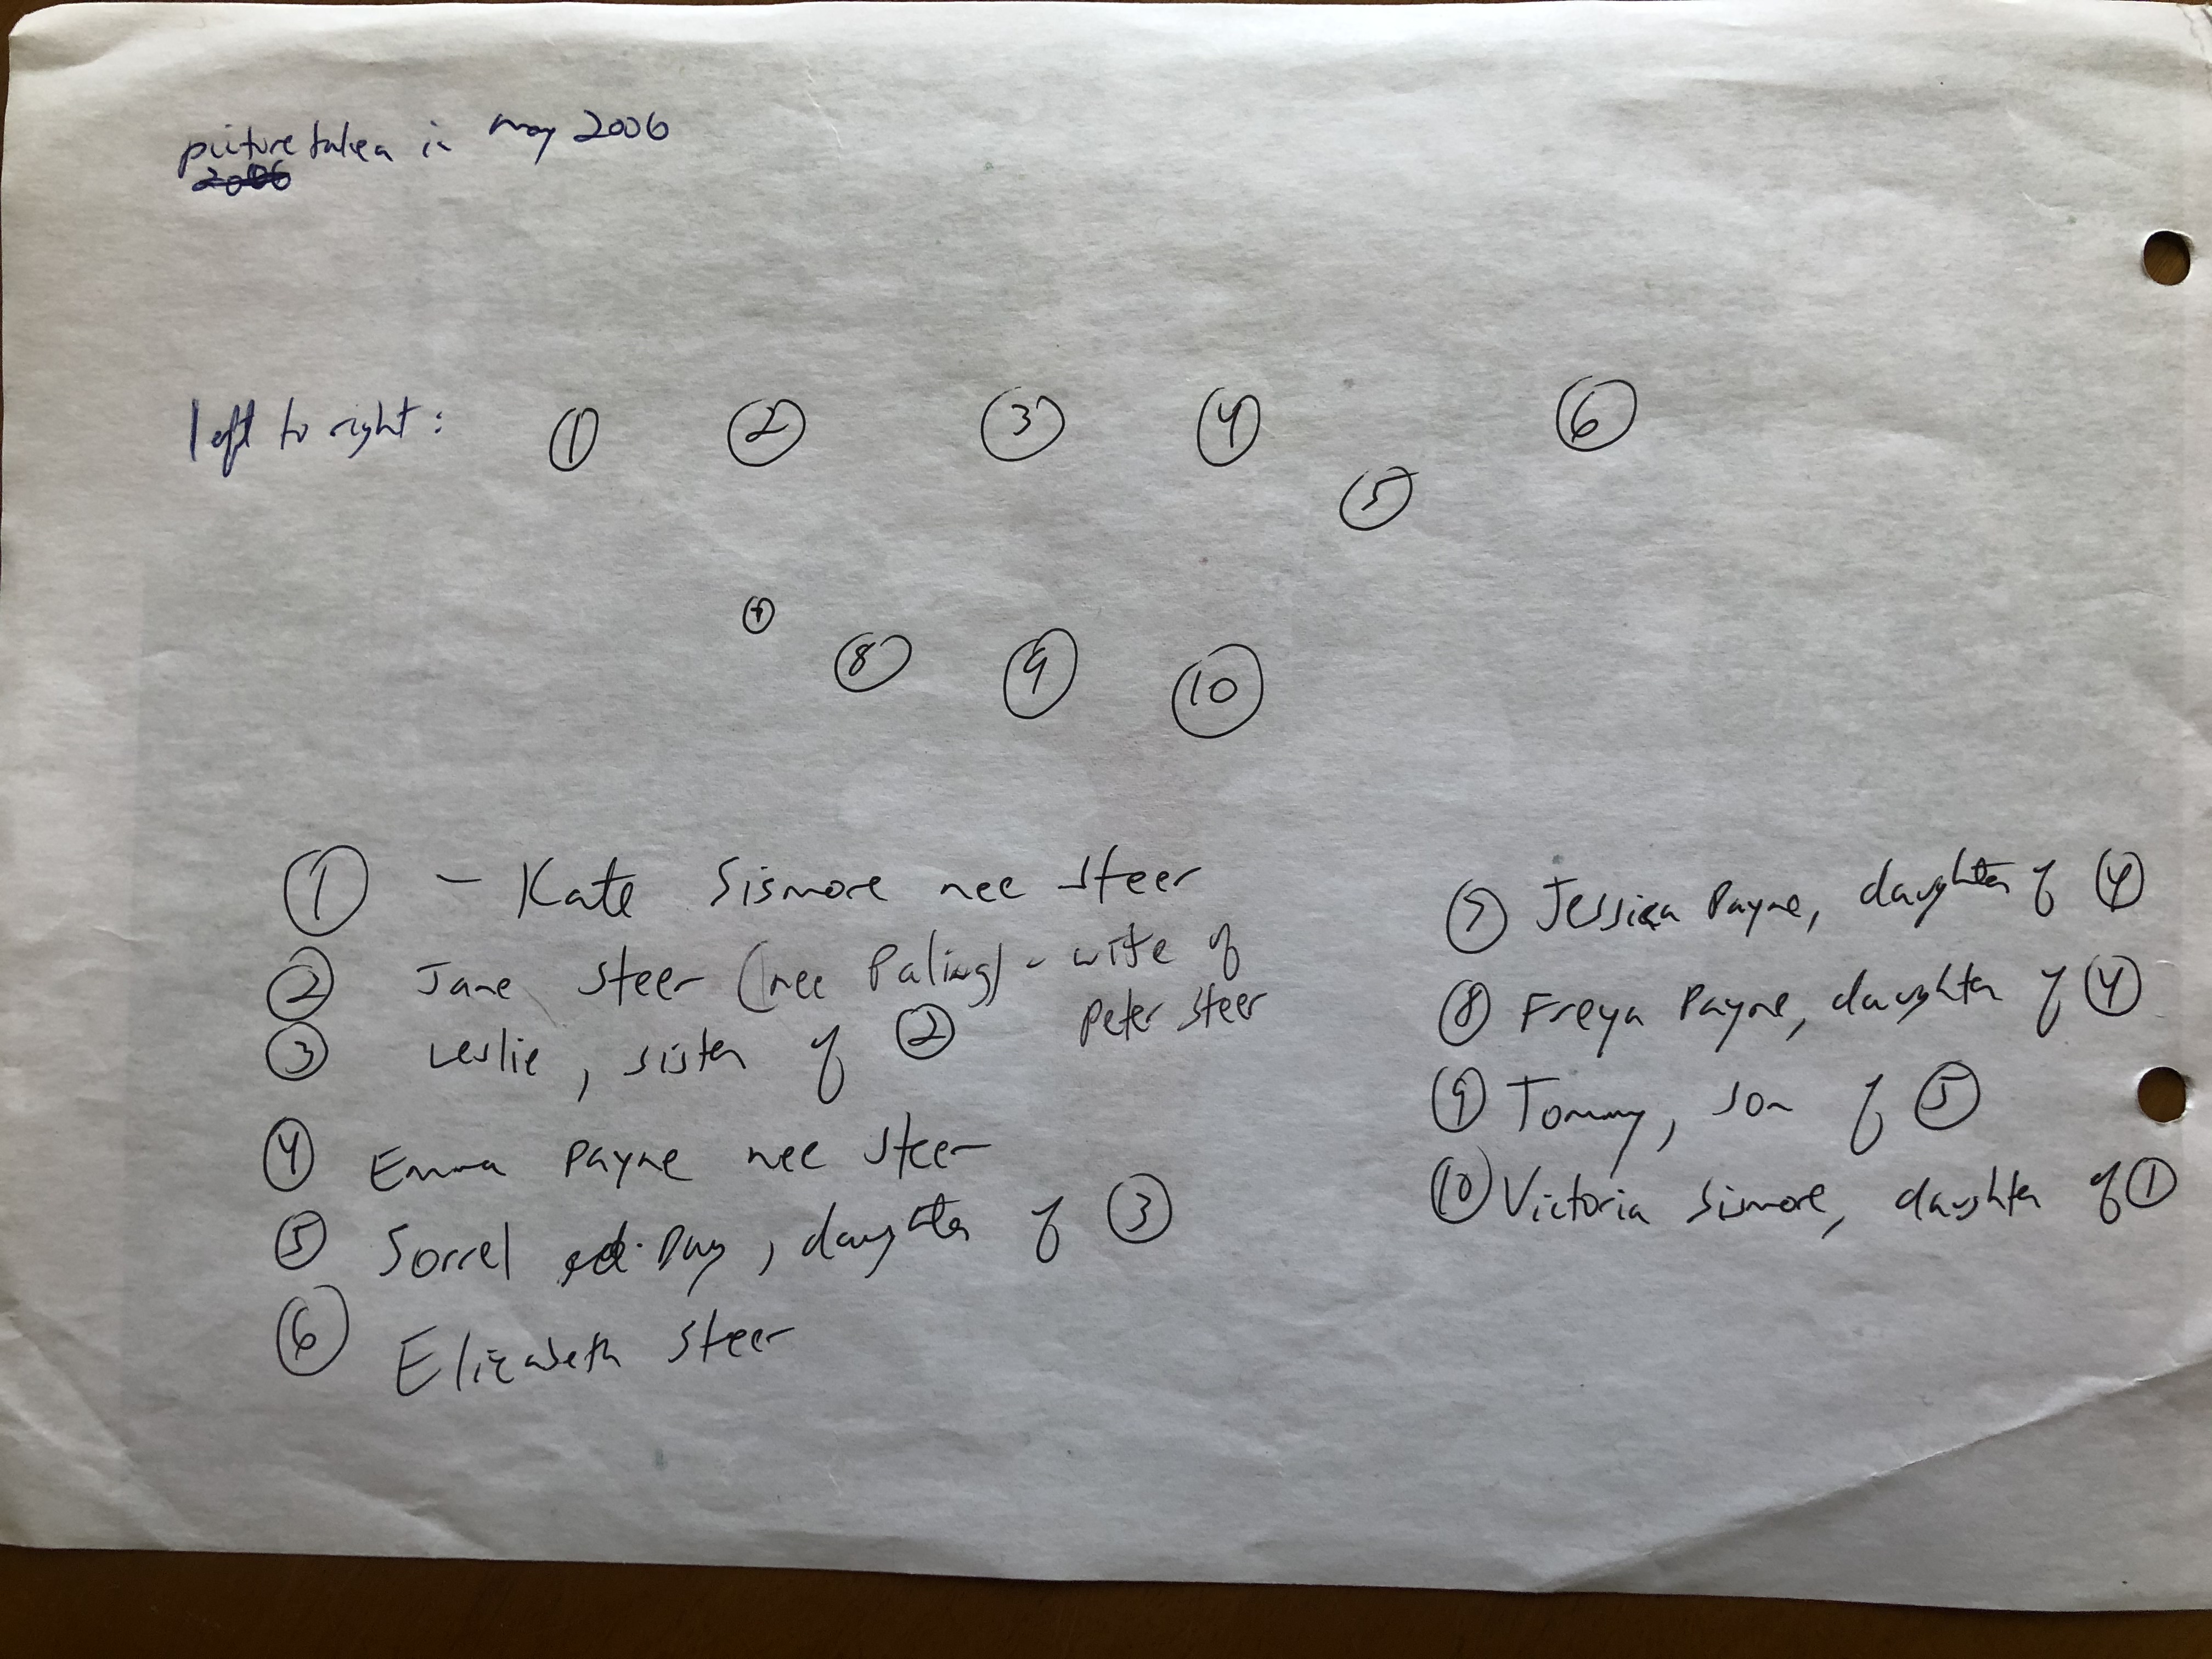 picture taken in may 2006
2006
left to right: ① ② ③ ④ ⑥
⑤
⑦
⑧ ⑨ ⑩
① - Kate Sismore nee Steer
② Jane Steer (nee Paling) - wife of
Peter Steer
③ Leslie, sister of ②
④ Emma Payne nee Steer
⑤ Sorrel Day, daughter of ③
⑥ Elizabeth Steer
⑦ Jessica Payne, daughter of ④
⑧ Freya Payne, daughter of ④
⑨ Tommy, son of ⑤
⑩ Victoria Sismore, daughter of ①